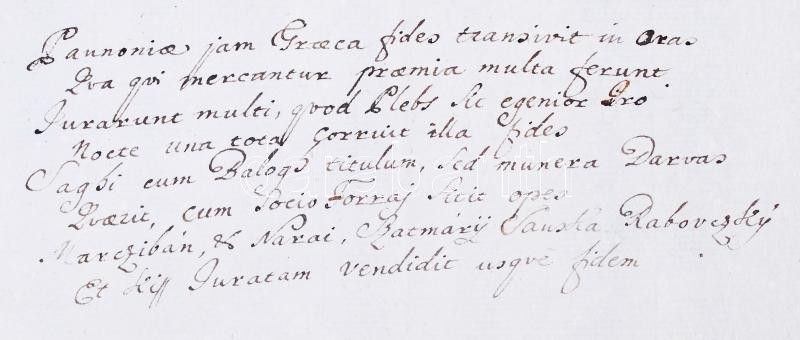 Pannoniæ jam Græca fides transivit in oras
Qva qvi mercantur præmia multa ferunt
Jurarunt multi, qvod Plebs sit egenior Iro
Nocte una tota corruit illa fides
Saghi cum Balogh titulum, sed munera Darvas
Qværit, cum Socio Forraj sitit opes
Marczibán, & Narai, Szatmárÿ Sauska Rabovczkÿ
Et Kiss Juratam vendidit usqvè fidem